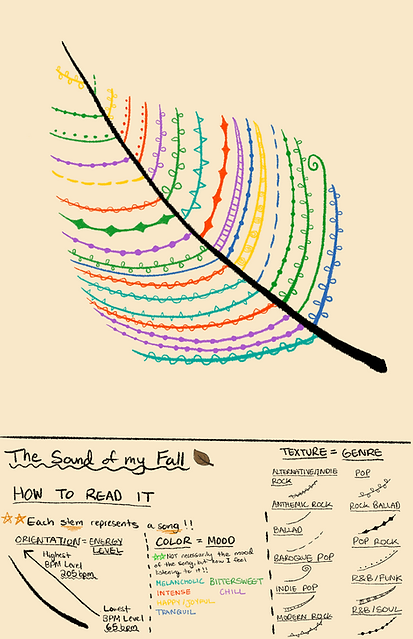 The Sound of my Fall !!
HOW TO READ IT
Each stem represents a song!!
ORIENTATION = ENERGY
LEVEL
Highest
BPM Level
205 bpm
Lowest
BPM Level
65 bpm
COLOR = MOOD
NOT necessarily the mood
of the song, but how I feel
listening to it!!
MELANCHOLIC BITTERSWEET
INTENSE CHILL
HAPPY/JOYFUL
TRANQUIL
TEXTURE = GENRE
ALTERNATIVE/INDIE
ROCK
ANTHEMIC ROCK
BALLAD
BAROQUE POP
INDIE POP
MODERN ROCK
POP
ROCK BALLAD
POP ROCK
R&B/FUNK
R&B/SOUL